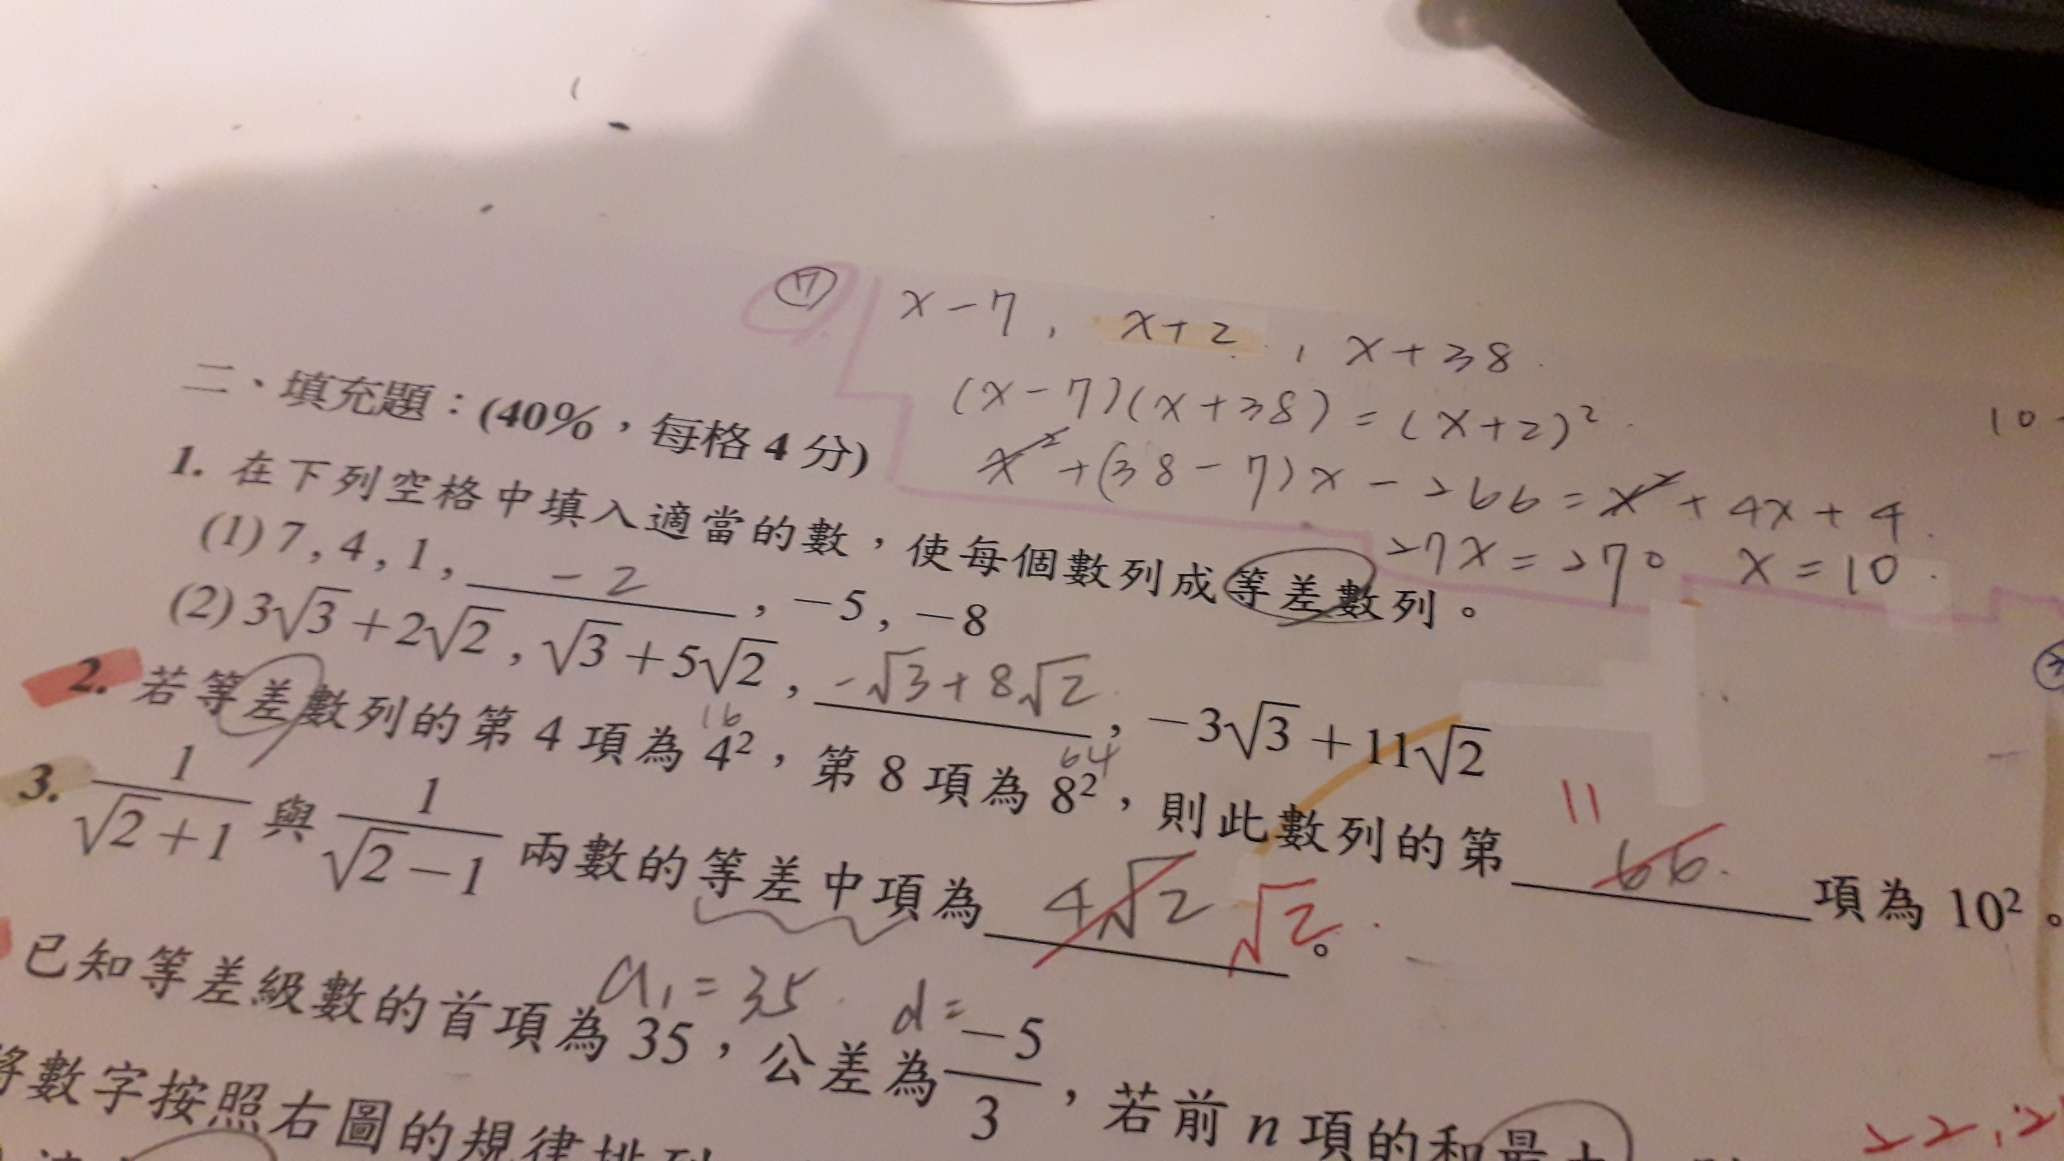 ⑰ x-7, x+2, x+38.
(x-7)(x+38)=(x+2)²
x²+(38-7)x-266=x²+4x+4.
27x=270 x=10.
10
二、填充題：(40%，每格 4 分)
1. 在下列空格中填入適當的數，使每個數列成等差數列。
(1) 7 , 4 , 1 , -2 , -5 , -8
(2) 3√3+2√2 , √3+5√2 , -√3+8√2 , -3√3+11√2
16
64
2. 若等差數列的第 4 項為 4²，第 8 項為 8²，則此數列的第 66. 11 項為 10²。
3. 1/(√2+1) 與 1/(√2-1) 兩數的等差中項為 4√2 √2。
a₁=35 d=
已知等差級數的首項為 35，公差為 -5/3，若前 n 項的和最大
將數字按照右圖的規律排列